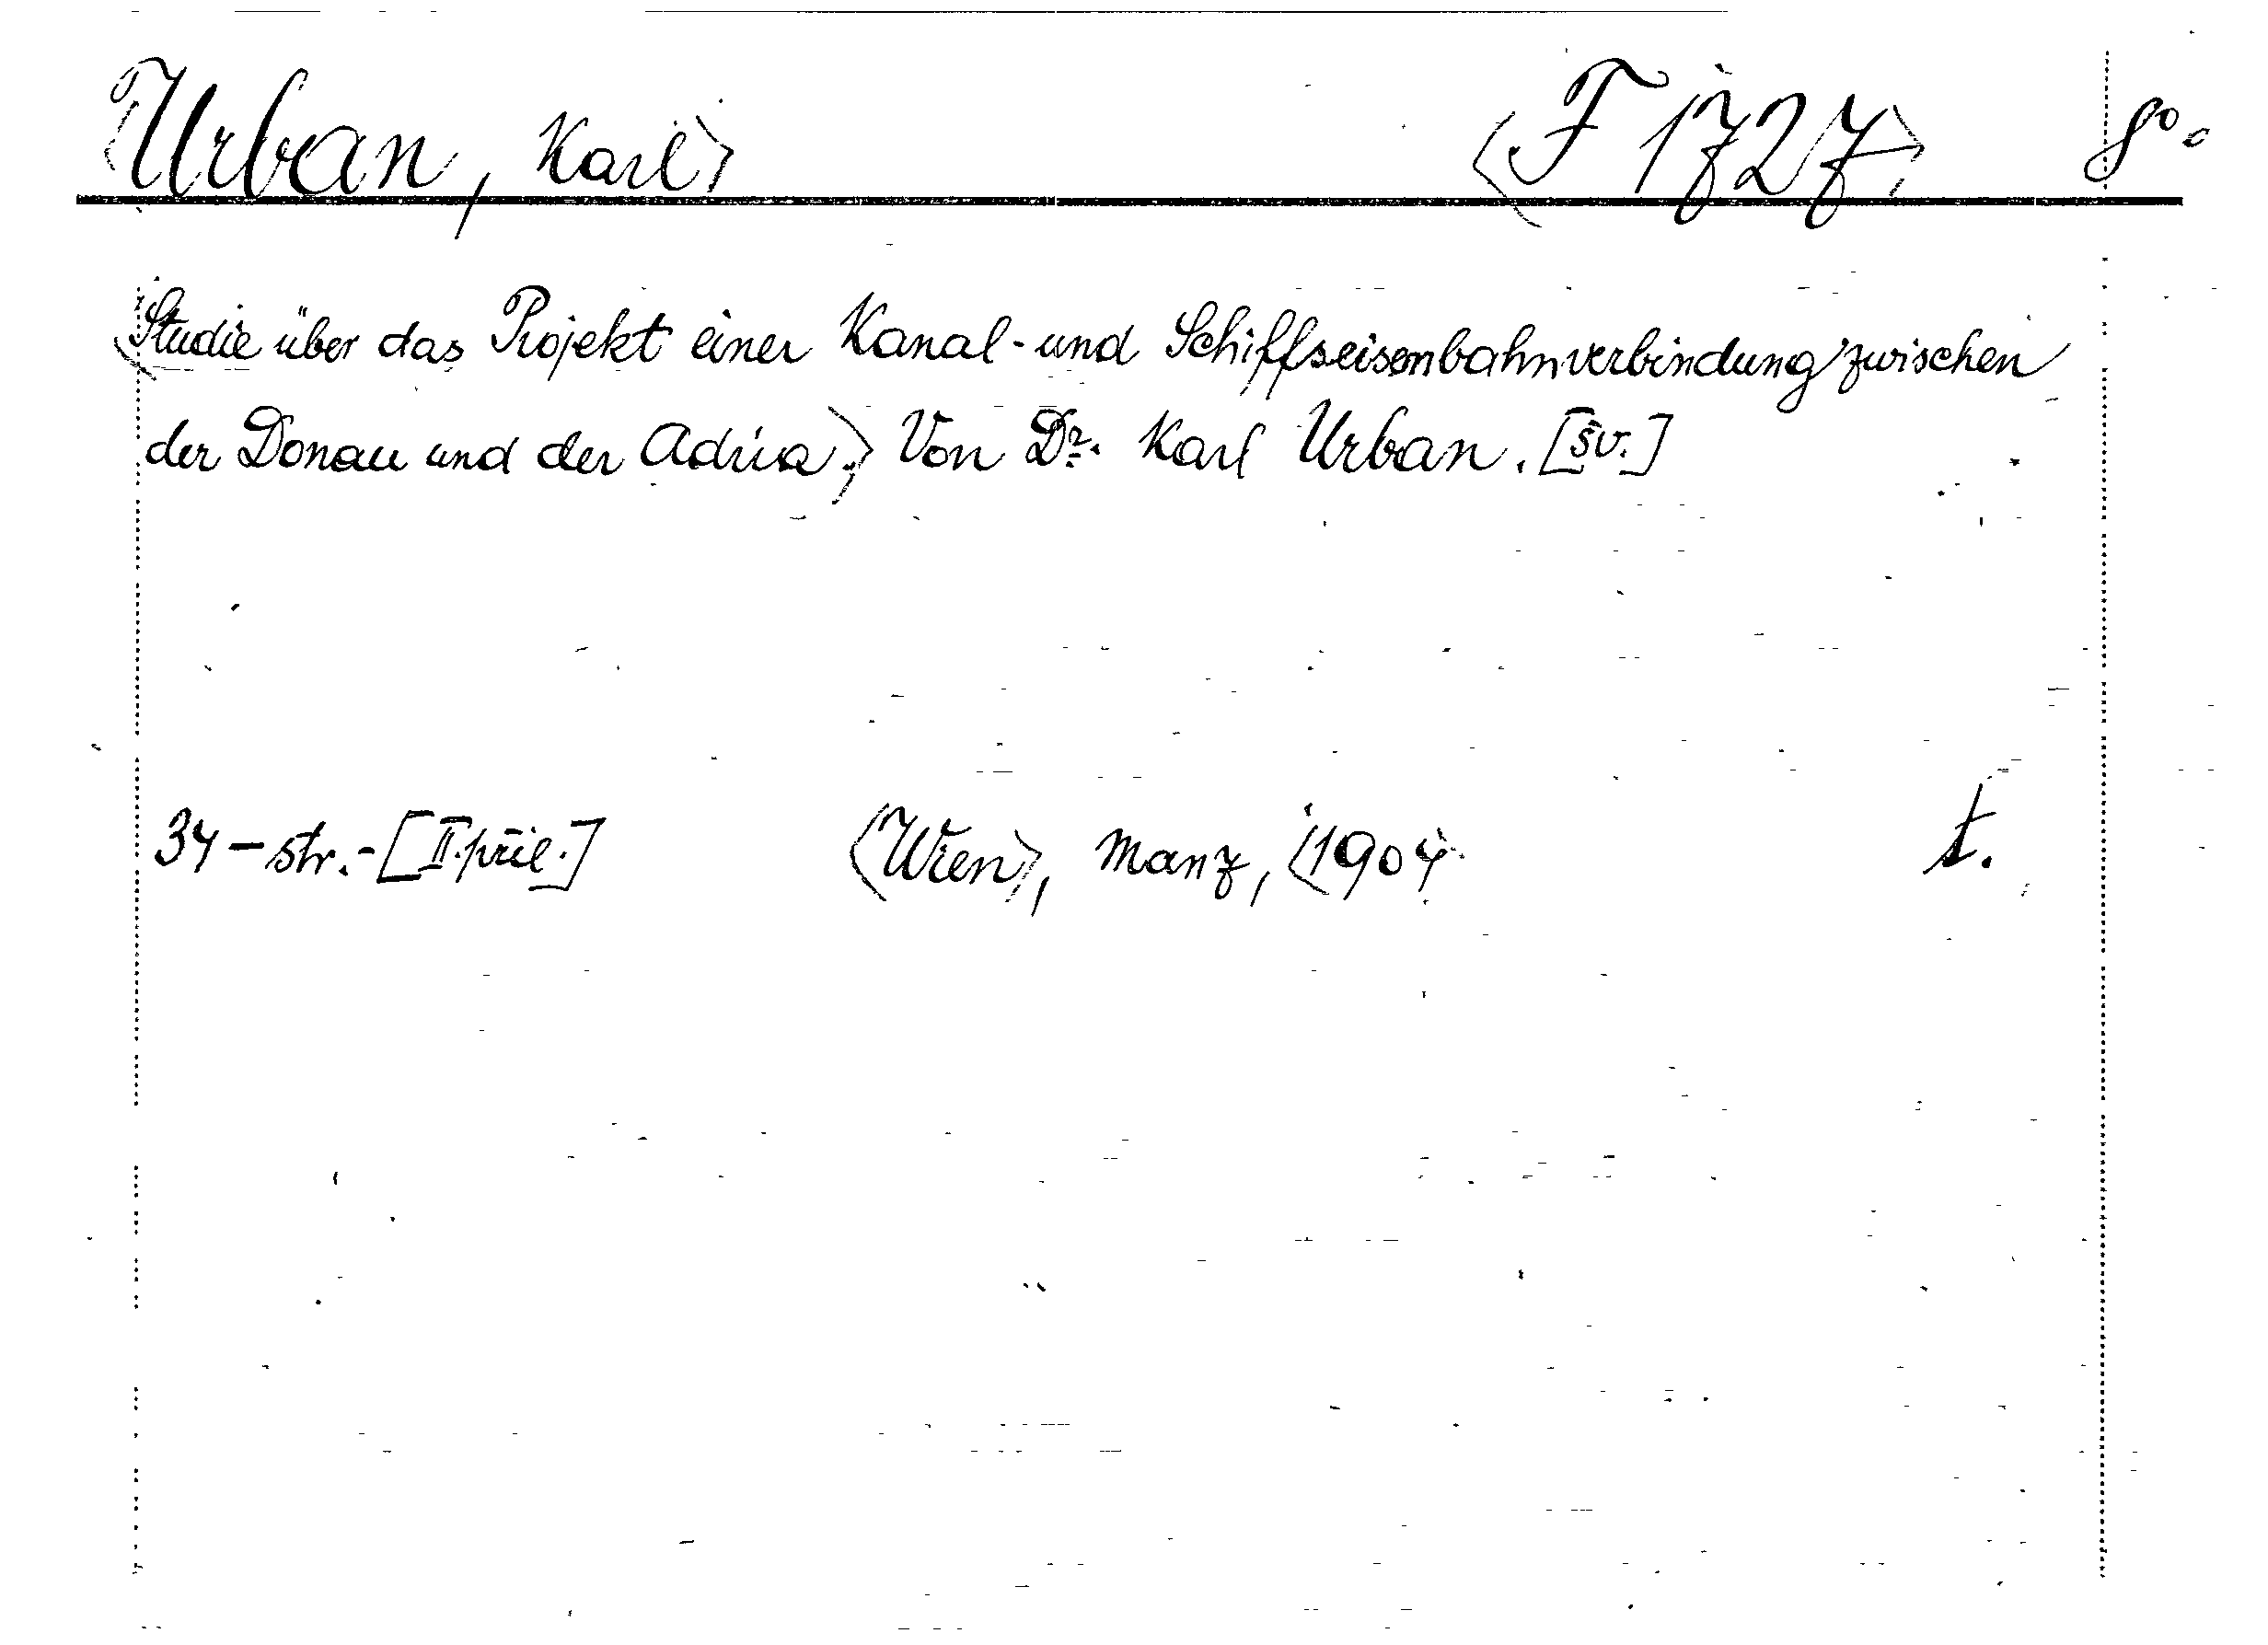 〈Urban, Karl〉 〈F 1727〉 8°.
〈Studie über das Projekt einer Kanal- und Schiffseisenbahnverbindung zwischen
der Donau und der Adria.〉 Von Dr. Karl Urban. [šv.]
34 - str. - [II. příl.] 〈Wien〉, Manz, 〈1904 t.